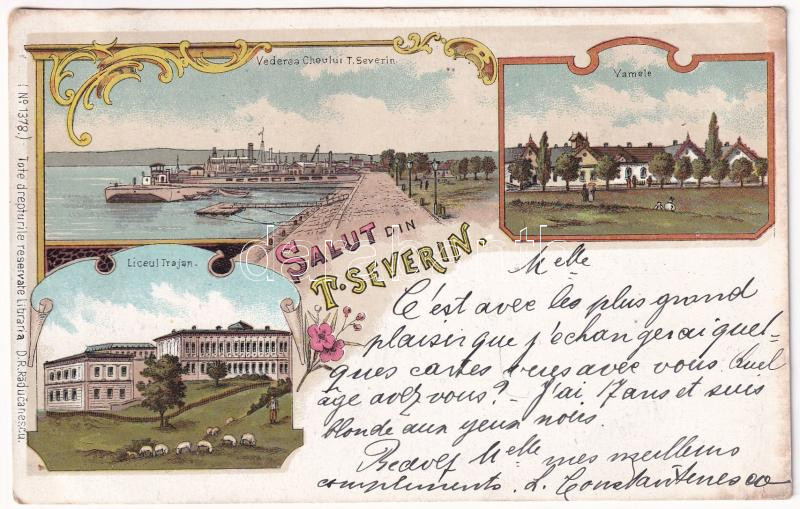 Vederea Cheului T. Severin.
Vamele
SALUT DIN
T. SEVERIN.
Liceul Trajan.
(No 1378.) Tote drepturile reservate Libraria D.R. Răducanescu.
Melle
C'est avec les plus grand
plaisir que j'échangerai quel-
ques cartes vues avec vous. Quel
âge avez vous? - J'ai 17 ans et suis
blonde aux yeux noirs.
Melle mes meilleurs
compliments. L. Constantinescu
darabanth